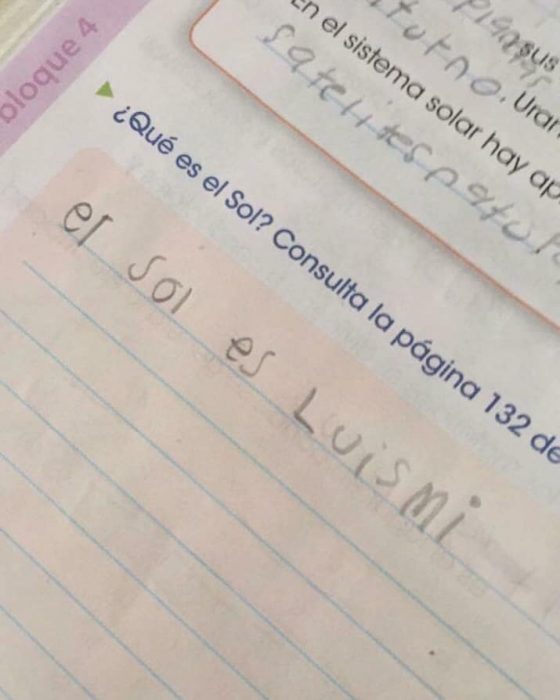 bloque 4
sus
tutno. Uran
En el sistema solar hay ap
satelites natura
¿Qué es el Sol? Consulta la página 132 de
el sol es LuisMi